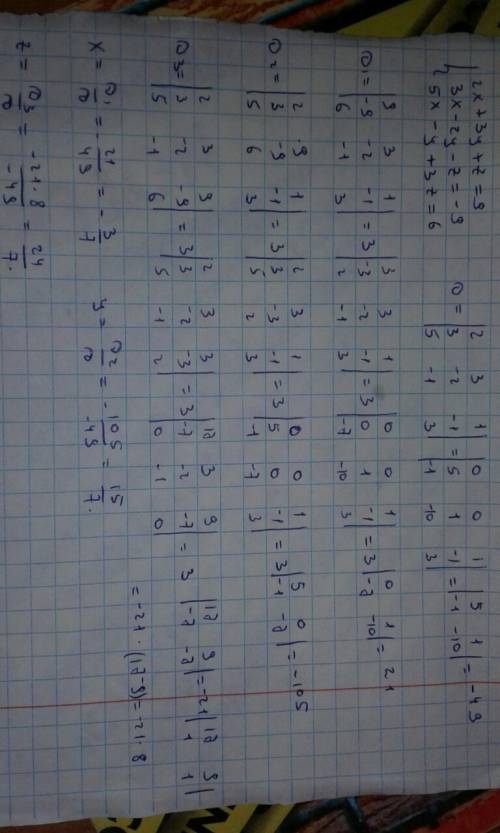 { 2x + 3y + z = 9
3x - 2y - z = -9
5x - y + 3z = 6
D = | 2 3 1 |
| 3 -2 -1 |
| 5 -1 3 | = | 0 0 1 |
| 5 1 -1 |
| -1 -10 3 | = | 5 1 |
| -1 -10 | = -49
D₁ = | 9 3 1 |
| -9 -2 -1 |
| 6 -1 3 | = 3 | 3 3 1 |
| -3 -2 -1 |
| 2 -1 3 | = 3 | 0 0 1 |
| 0 1 -1 |
| -7 -10 3 | = 3 | 0 1 |
| -7 -10 | = 21
D₂ = | 2 9 1 |
| 3 -9 -1 |
| 5 6 3 | = 3 | 2 3 1 |
| 3 -3 -1 |
| 5 2 3 | = 3 | 0 0 1 |
| 5 0 -1 |
| -1 -7 3 | = 3 | 5 0 |
| -1 -7 | = -105
D₃ = | 2 3 9 |
| 3 -2 -9 |
| 5 -1 6 | = 3 | 2 3 3 |
| 3 -2 -3 |
| 5 -1 2 | = 3 | 17 3 9 |
| -7 -2 -7 |
| 0 -1 0 | = 3 | 17 9 |
| -7 -7 | = -21 | 17 9 |
| 1 1 |
= -21 · (17-9) = -21·8
x = D₁/D = 21/-49 = -3/7
y = D₂/D = -105/-49 = 15/7.
z = D₃/D = -21·8/-49 = 24/7.